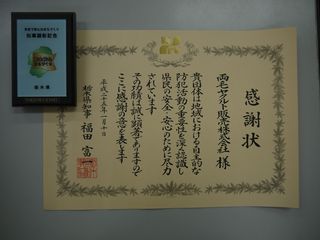 感謝状
両毛ヤクルト販売株式会社 様
貴団体は地域における自主的な
防犯活動の重要性を深く認識し
県民の安全・安心のために尽力
されています
その功績は誠に顕著でありますので
ここに感謝の意を表します
平成二十五年一月十日
栃木県知事 福田富一
知事顕彰記念
栃木県